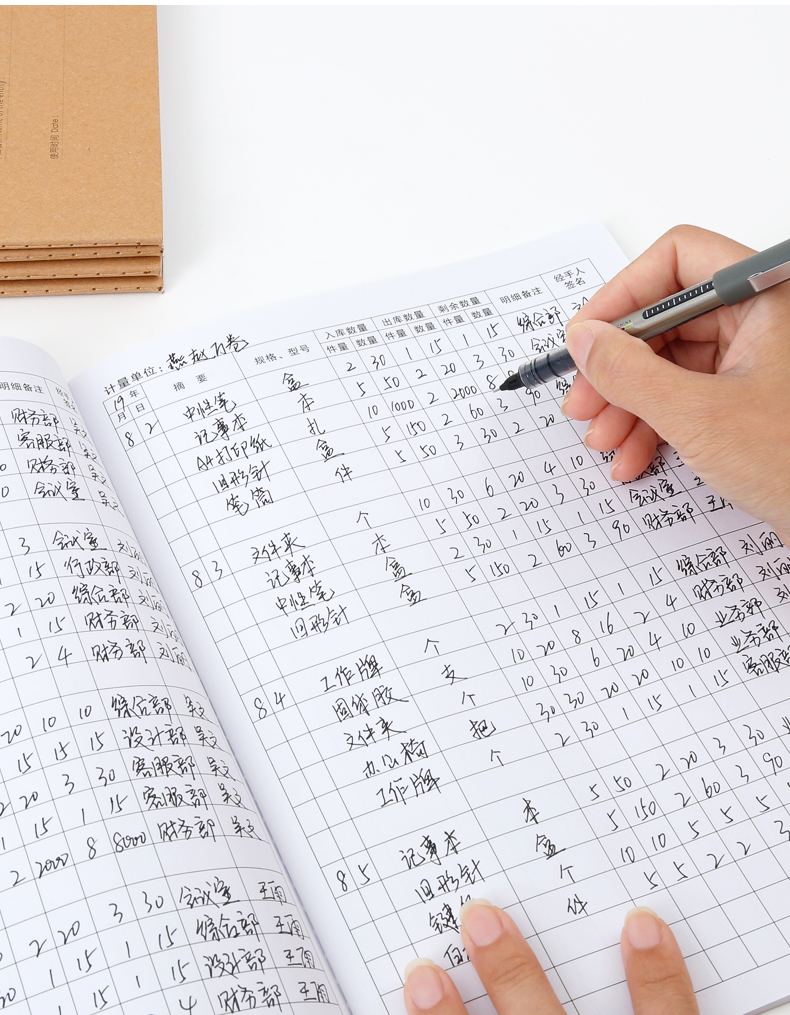 使用时间 Date:
明细备注
财务部 吴文
客服部 吴文
财务部 吴文
会议室 吴文
3 会议室
1 15 行政部
2 20 综合部
1 15 财务部
2 4 财务部
20 10 10 综合部 吴文
15 15 15 设计部 吴文
2 20 3 30 客服部 吴文
1 15 1 15 客服部 吴文
2 2000 8 8000 财务部 吴文
3 30 会议室 王雨
2 20 1 15 综合部 王雨
1 15 1 15 设计部 王雨
1 15 4 财务部 王雨
计量单位:
19 年 摘 要 规格、型号 入库数量 出库数量 剩余数量 明细备注 经手人签名
月 日 件量 数量 件量 数量 件量 数量
8 2 中性笔 盒 2 30 1 15 1 15 综合部
记事本 本 5 50 2 20 3 30 会议室
A4打印纸 扎 10 1000 2 2000 8
回形针 盒 5 150 2 60 3 90
笔筒 件 5 50 3 30 2 20
8 3 文件夹 个 10 30 6 20 4 10
记事本 本 5 50 2 20 3 30 会议室
中性笔 盒 2 30 1 15 1 15 会议室
回形针 盒 5 150 2 60 3 90 财务部 王雨
8 4 工作牌 个 2 30 1 15 1 15 综合部 刘丽
固体胶 支 10 20 8 16 2 4 财务部 刘丽
文件夹 个 10 30 6 20 4 10 业务部
办公椅 把 30 30 20 20 10 10 业务部
工作牌 个 2 30 1 15 1 15 客服部
8 5 记事本 本 5 50 2 20 3 30
回形针 盒 5 150 2 60 3 90
个 10 10 5 5 5
件 5 5 2 2 3